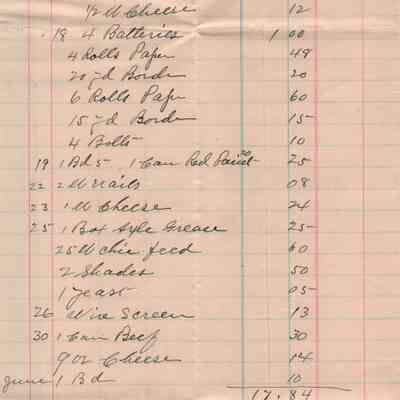 1/2 # Cheese 12
18 4 Batteries 1 00
4 Rolls Paper 48
20 yd Border 20
6 Rolls Paper 60
15 yd Border 15
4 Bolts 10
19 1 Bd 5 1 Can Red Paint 20 25
22 2 # nails 08
23 1 # Cheese 24
25 1 Box Axle Grease 25
25 # chic feed 60
2 Shades 50
1 yeast 05
26 Wire Screen 13
30 1 Can Beef 30
9 oz Cheese 14
June 1 Bd 10
17.84